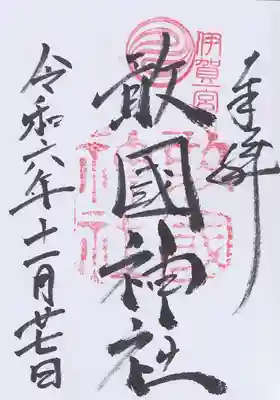 奉拝
伊賀一宮
敢國神社
令和六年十一月廿七日